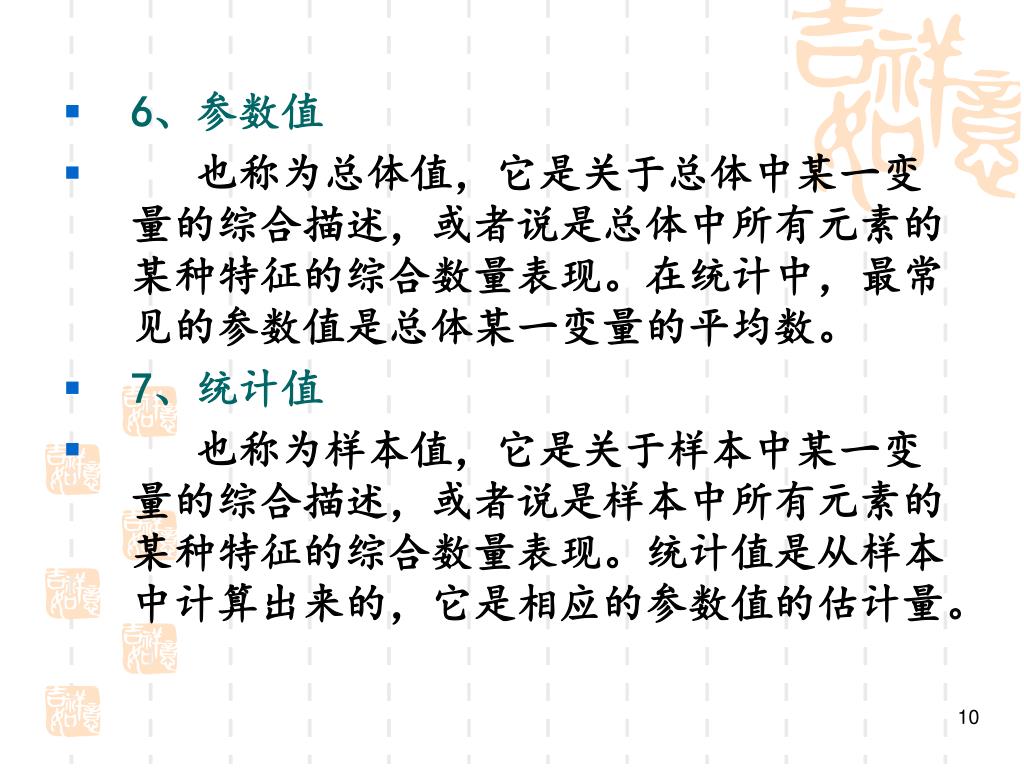 6、参数值
也称为总体值，它是关于总体中某一变
量的综合描述，或者说是总体中所有元素的
某种特征的综合数量表现。在统计中，最常
见的参数值是总体某一变量的平均数。
7、统计值
也称为样本值，它是关于样本中某一变
量的综合描述，或者说是样本中所有元素的
某种特征的综合数量表现。统计值是从样本
中计算出来的，它是相应的参数值的估计量。
10
吉祥如意
吉祥如意
吉祥如意
吉祥如意
吉祥如意
吉祥如意
吉祥如意